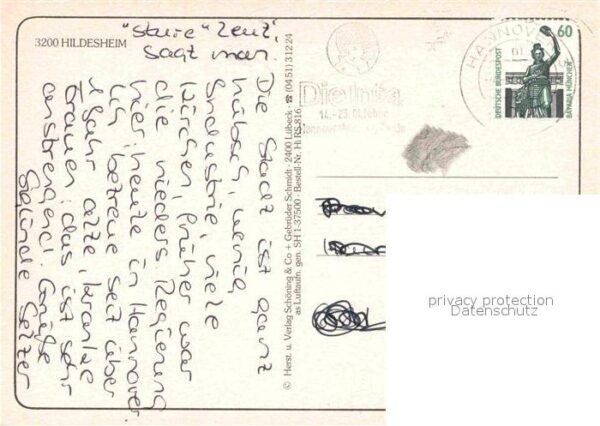 3200 HILDESHEIM
"sture" Leut',
sagt man.
Die Stadt ist ganz
hübsch, wenig
Industrie, viele
Kirchen, früher war
die nieders. Regierung
hier, heute in Hannover
Ich betreue seit über
1 Jahr alte, kranke
Frauen; das ist sehr
anstrengend. Grüße
Gelzer
© Herst. u. Verlag Schöning & Co + Gebrüder Schmidt · 2400 Lübeck · ☎ (04 51) 3 12 24
as Luftaufn. gen. SH 1-37500 · Bestell-Nr. Hi RS 816
Die Infa
14.-23. Oktober
HANNOVER
61
60
DEUTSCHE BUNDESPOST
BAVARIA MÜNCHEN
privacy protection
Datenschutz